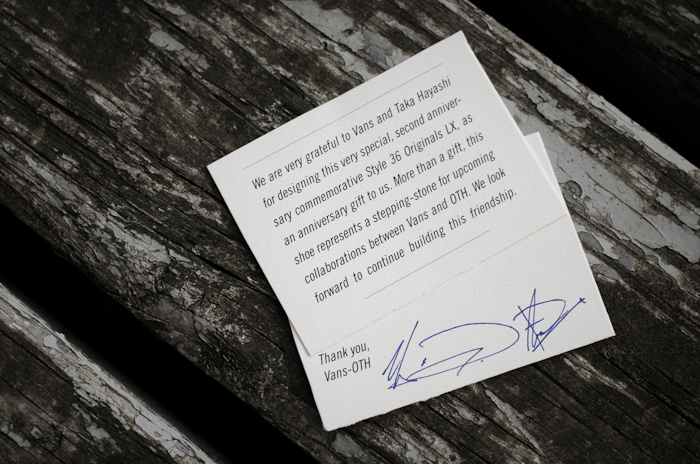 We are very grateful to Vans and Taka Hayashi
for designing this very special, second anniver-
sary commemorative Style 36 Originals LX, as
an anniversary gift to us. More than a gift, this
shoe represents a stepping-stone for upcoming
collaborations between Vans and OTH. We look
forward to continue building this friendship.
Thank you,
Vans-OTH